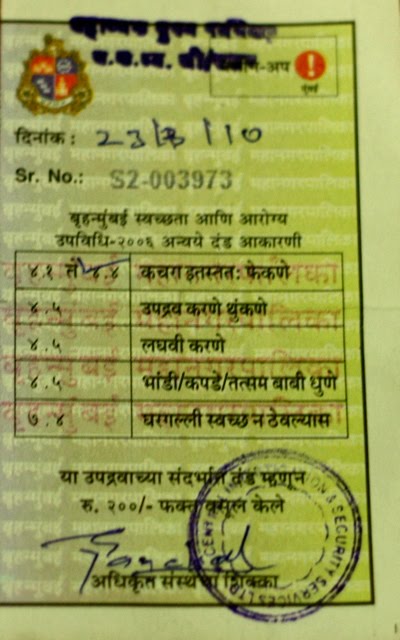 क्लीन-अप
मुंबई
दिनांक : 23/3/10
Sr. No.: S2-003973
बृहन्मुंबई स्वच्छता आणि आरोग्य
उपविधि-२००६ अन्वये दंड आकारणी
४.१ ते ४.४ कचरा इतस्तत: फेकणे
४.५ उपद्रव करणे थुंकणे
४.५ लघवी करणे
४.५ भांडी/कपडे/तत्सम बाबी धुणे
७.४ घरगल्ली स्वच्छ न ठेवल्यास
या उपद्रवाच्या संदर्भात दंड म्हणून
रु. २००/- फक्त वसूल केले
अधिकृत संस्थेचा शिक्का
& SECURITY SERVICES LTD